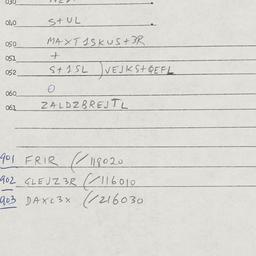 040 S+UL
050 MAXT1SKUS+3R
051 +
052 S+1SL ) VEJKS+QEFL
060 O
061 ZALDZBREJTL
901 FRIR (/118020
902 GLEJZ3R (/116010
903 DAXL3X (/216030